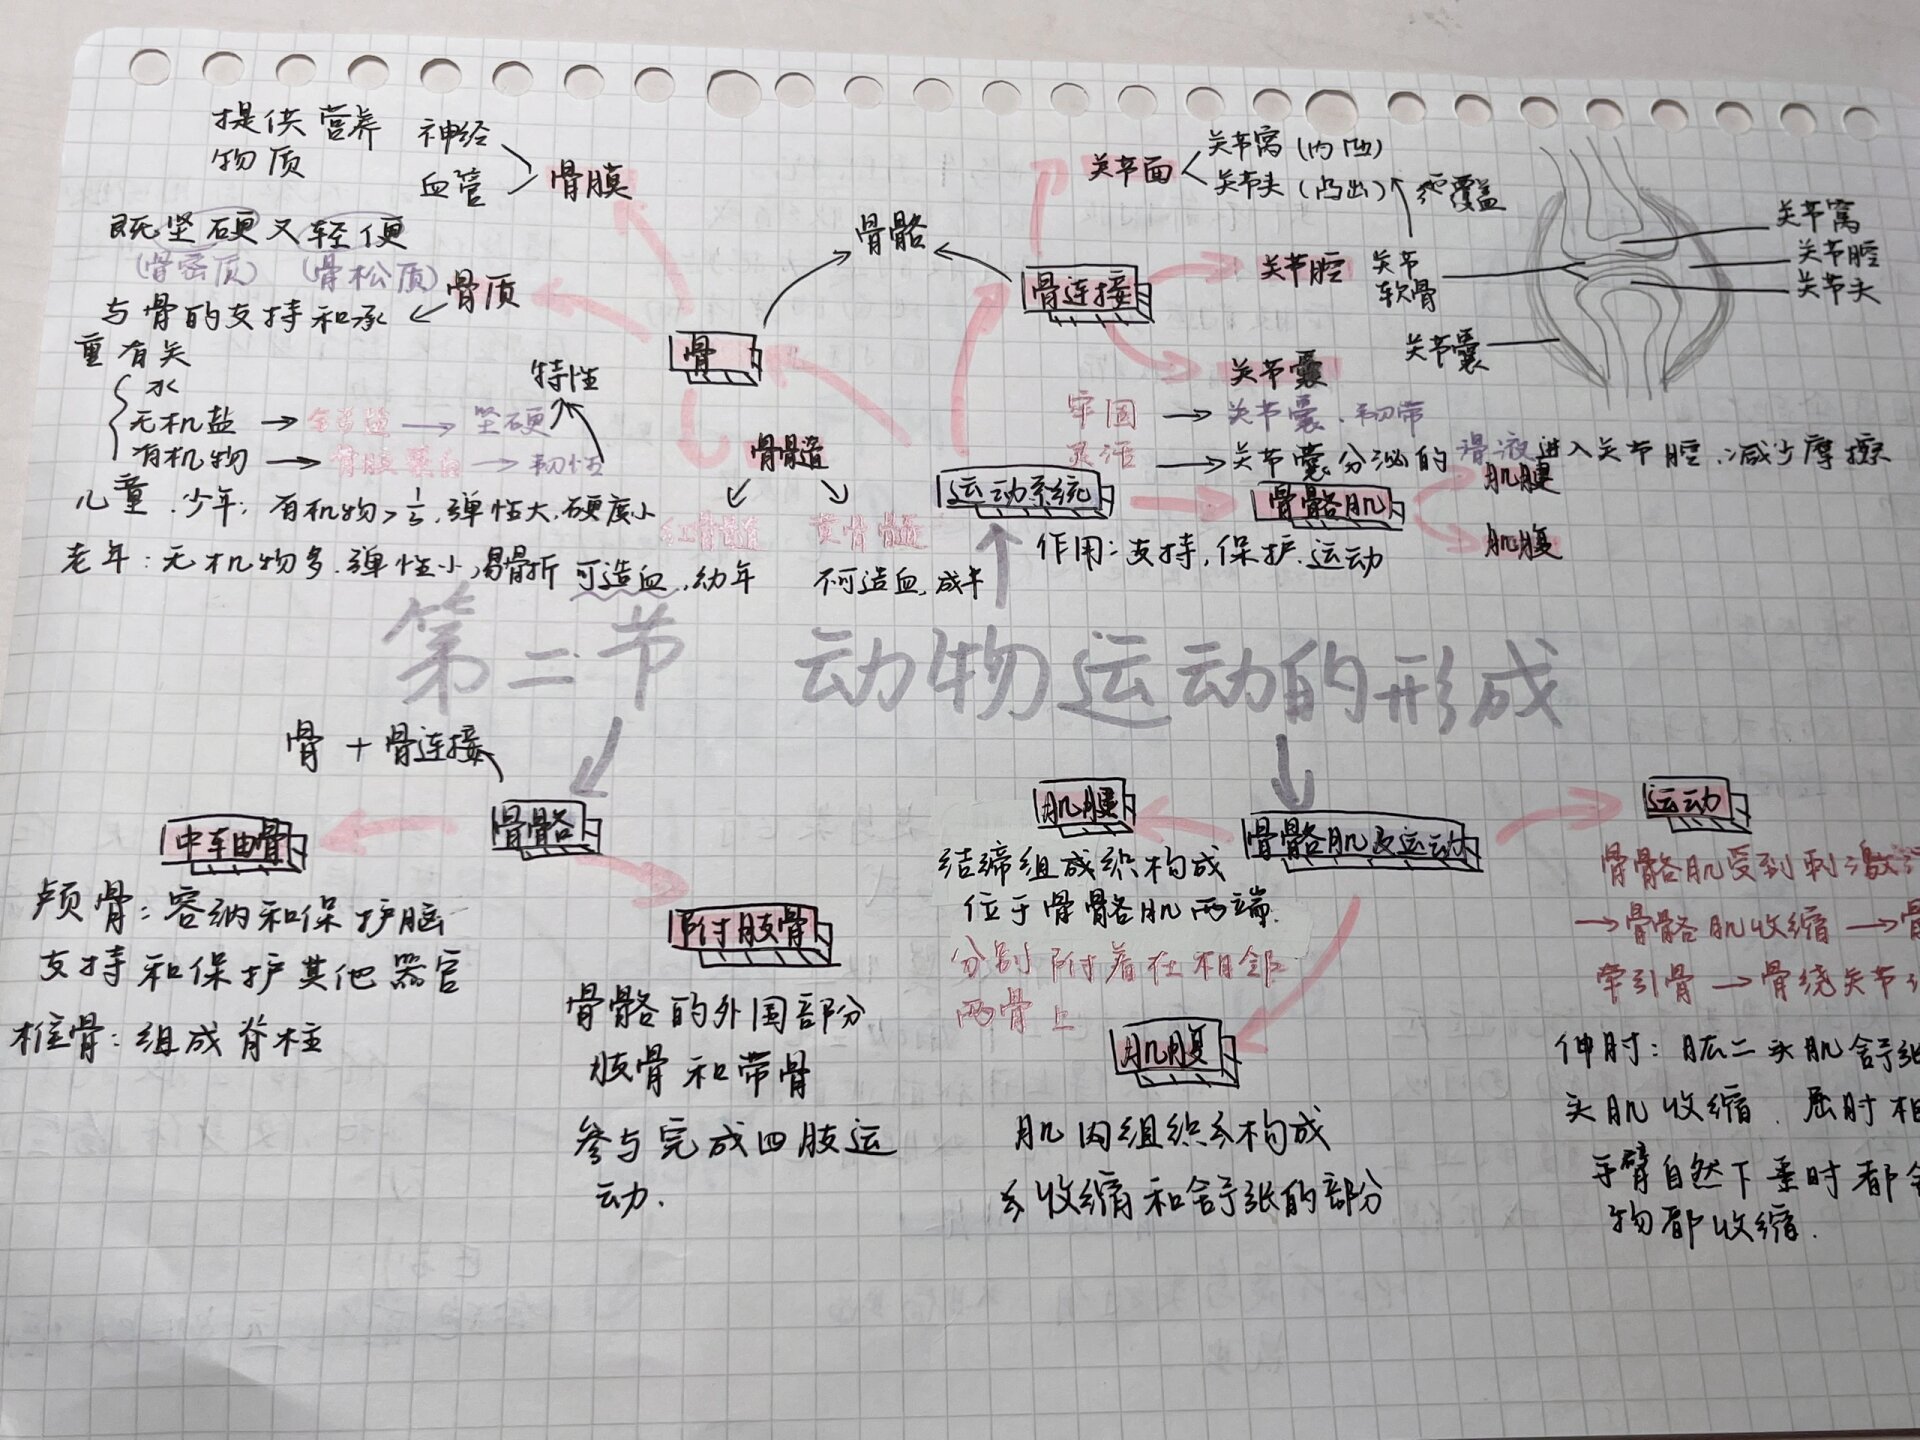 提供营养
物质
神经
血管
骨膜
既坚硬又轻便
(骨密质) (骨松质)
骨质
与骨的支持和承
重有关
水
无机盐 → 钙盐 → 坚硬
有机物 → 骨胶蛋白 → 韧性
特性
儿童.少年: 有机物>1/3,弹性大,硬度小
老年: 无机物多.弹性小,易骨折
骨
骨骼
骨髓
红骨髓
黄骨髓
可造血,幼年
不可造血,成年
关节面
关节窝(内凹)
关节头(凸出)
覆盖
骨连接
关节腔
关节
软骨
关节囊
关节囊
牢固 → 关节囊.韧带
灵活 → 关节囊分泌的滑液进入关节腔,减少摩擦
关节窝
关节腔
关节头
运动系统
骨骼肌
肌腱
肌腹
作用: 支持,保护.运动
第二节 动物运动的形成
骨+骨连接
骨骼
中轴骨
颅骨: 容纳和保护脑
支持和保护其他器官
椎骨: 组成脊柱
附肢骨
骨骼的外围部分
肢骨和带骨
参与完成四肢运
动.
骨骼肌及运动
肌腱
结缔组成织构成
位于骨骼肌两端.
分别附着在相邻
两骨上
肌腹
肌肉组织构成
收缩和舒张的部分
运动
骨骼肌受到刺激
→骨骼肌收缩→
牵引骨→骨绕关节
伸肘: 肱二头肌舒张
头肌收缩.屈肘相
手臂自然下垂时都
物都收缩.